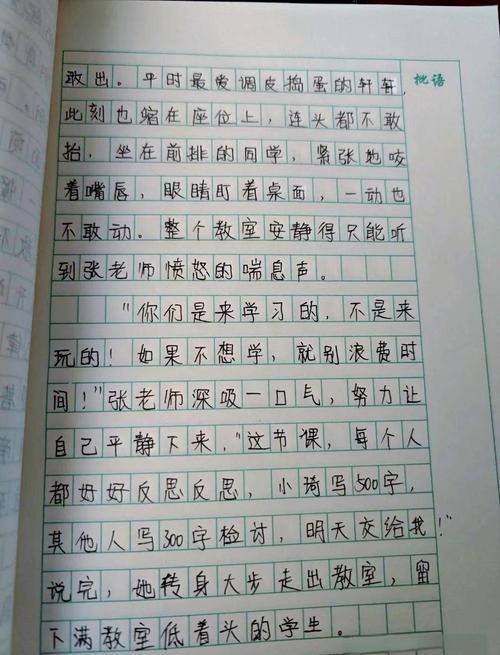 批语
敢出。平时最爱调皮捣蛋的轩轩,
此刻也缩在座位上，连头都不敢
抬，坐在前排的同学，紧张地咬
着嘴唇，眼睛盯着桌面，一动也
不敢动。整个教室安静得只能听
到张老师愤怒的喘息声。
"你们是来学习的，不是来
玩的！如果不想学，就别浪费时
间！"张老师深吸一口气，努力让
自己平静下来，"这节课，每个人
都好好反思反思，小琦写500字，
其他人写300字检讨，明天交给我！"
说完，她转身大步走出教室，留
下满教室低着头的学生。